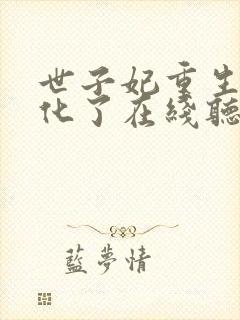 世子妃重生
化了在綫聽
藍夢情